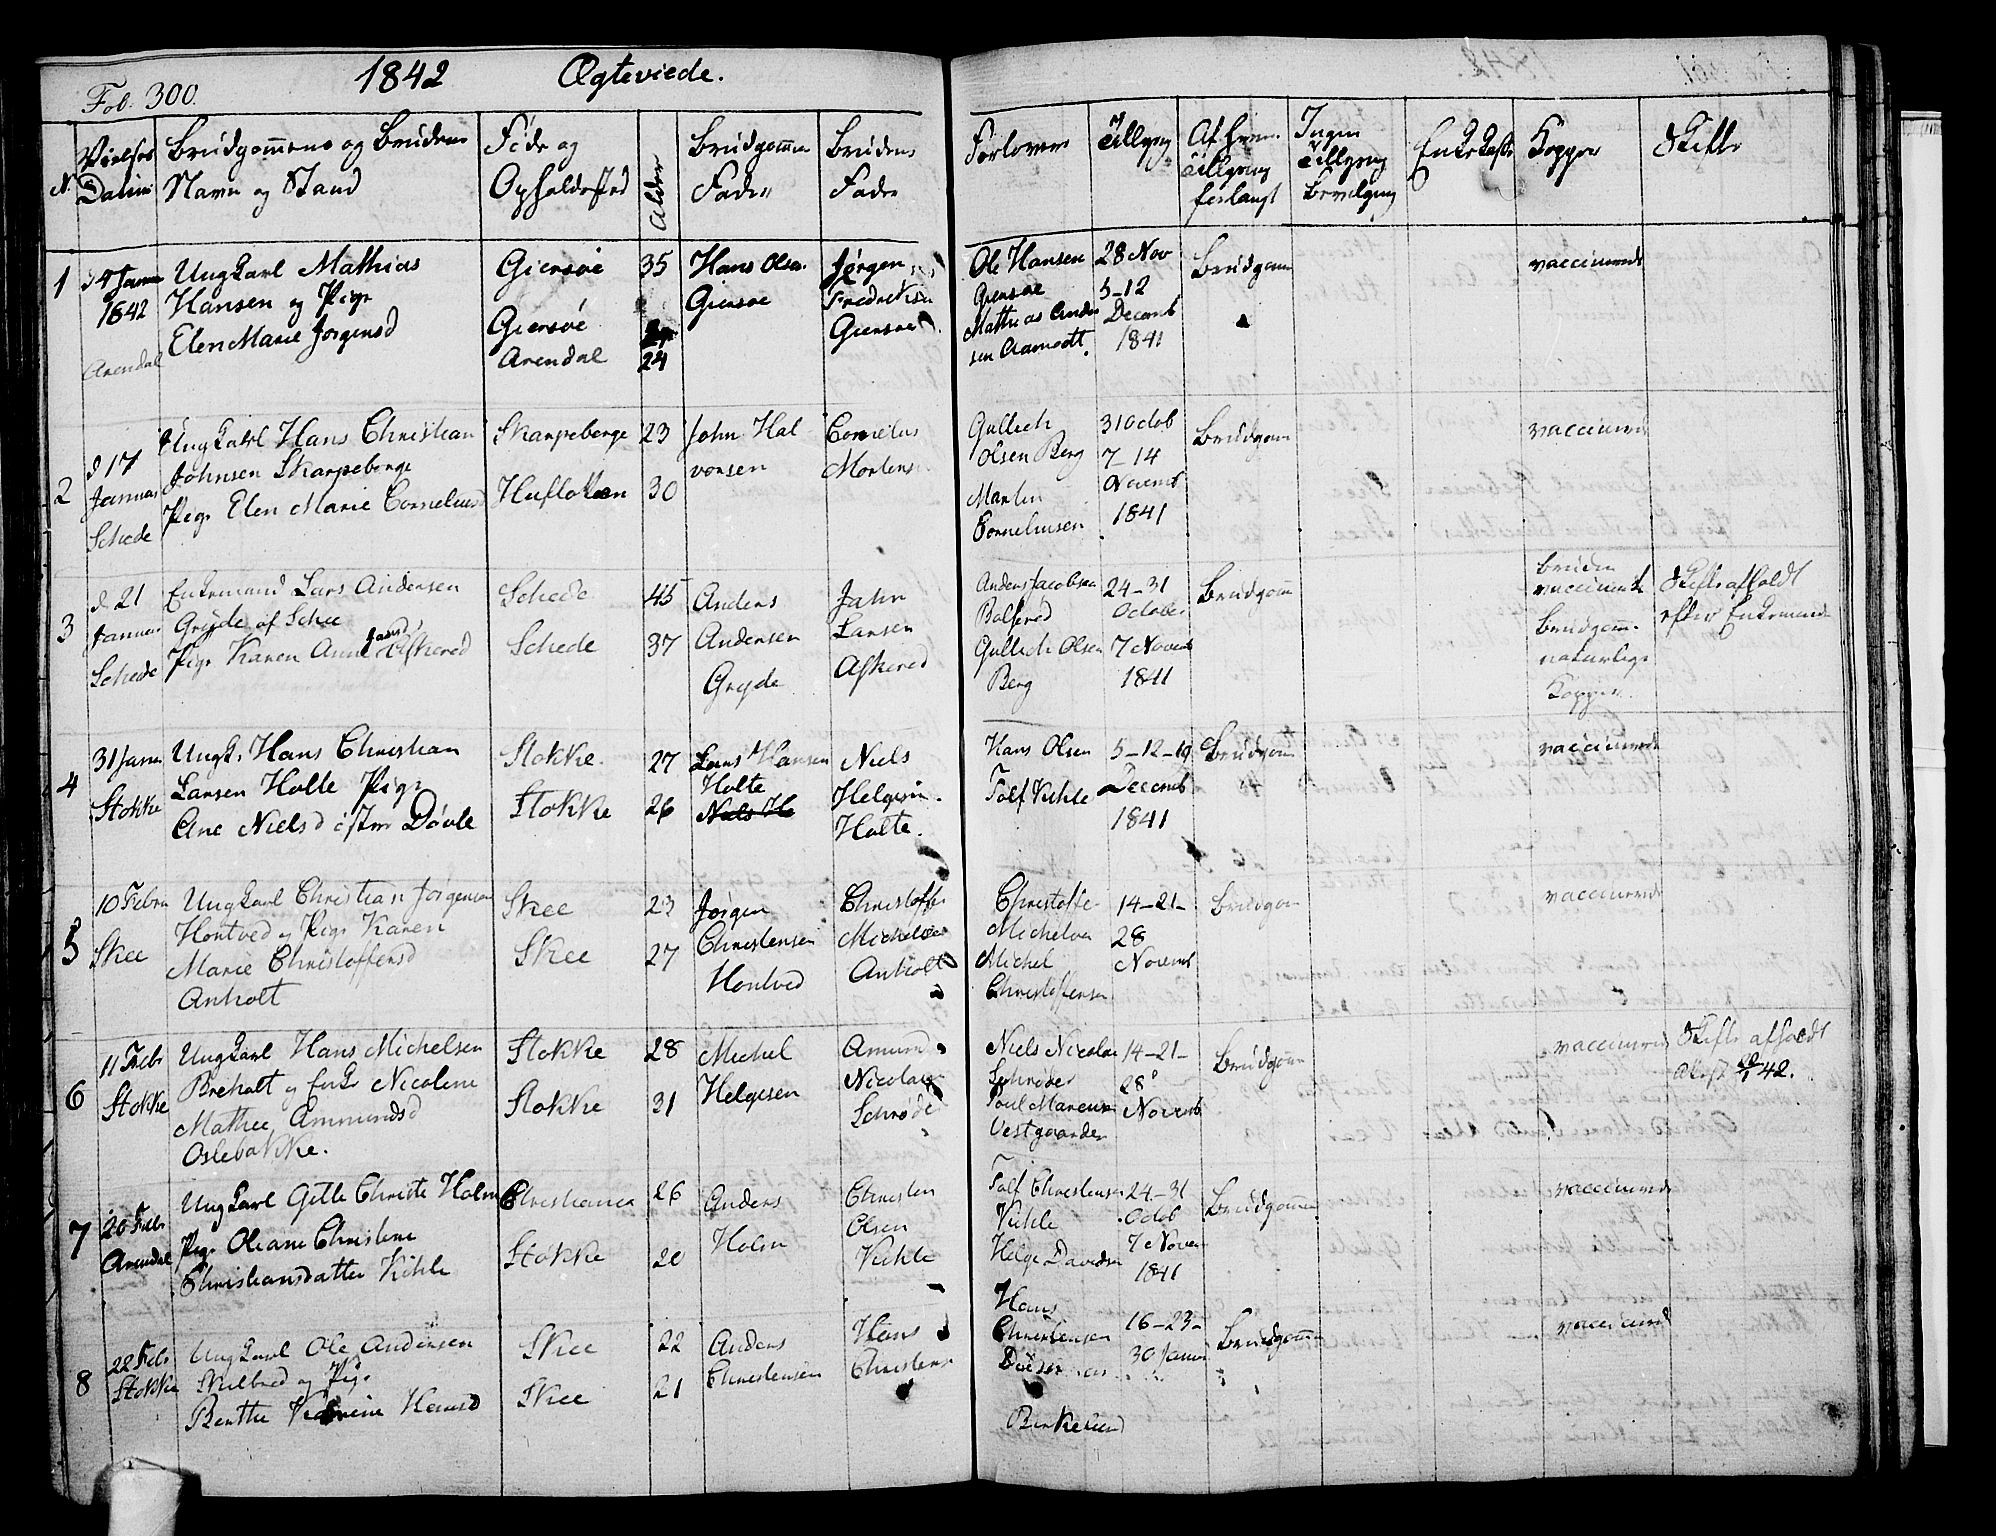 Fol. 300. 1842 Ægteviede.
N. Vielses Datum | Brudgommens og Brudens Navn og Stand | Føde og Opholdssted | Alder | Brudgommens Fader | Brudens Fader | Forlovere | Tillysng | Af hvem Tillysng forlangt | Ingen Tillysng Bevilgng | Enkekasse | Kopper | Skifte
1 | d 4 Janua 1842 Arendal | Ungkarl Mathias Hansen og Pige Elen Marie Jørgensd | Giersøe Giersøe Arendal | 35 24 | Hans Olsen Giersøe | Jørgen Fredriksen Giersøe | Ole Hansen Giersøe Mathias Andersen Aamodt. | 28 Nov 5-12 Decemb 1841 | Brudgom | vaccinerede
2 | d 17 Januar Schede | Ungkarl Hans Christian Johnsen Skarpeborge Pige Elen Marie Corneliusd | Skarpeborge | 23 30 | John Halvorsen | Cornelius Mortens | Gullich Olsen Berg Martin Corneliusen | 31 Octob 7-14 Novemb 1841 | Brudgom | vaccinerede
3 | d 21 Januar Schede | Enkemand Lars Andersen Gryde af Schee Pige Karen Anne Jansd Askerød | Schede Schede | 45 37 | Anders Andersen Gryde | Jahn Larsen Askerød | Anders Jacobsen Gullich Olsen Berg | 24-31 October 7 Novemb 1841 | Brudgom | Bruden vaccineret Brudgom. naturlige Kopper. | Skifte afholdt efter Enkemand
4 | 31 Janua Stokke | Ungk. Hans Christian Larsen Holte Pige Ane Nielsdatter Døvle | Stokke. Stokke | 27 26 | Lars Hansen Holte | Niels Helgesen Holte. | Hans Olsen Tolf Vehle | 5-12-19 Decemb 1841 | Brudgom | vaccinerede
5 | 10 Febru Skee | Ungkarl Christian Jørgensen Hontved og Pige Karen Marie Christoffersd Anholt | Skee Skee | 23 27 | Jørgen Christensen Hontved | Christoffer Michelsen Anholt | Christoffer Michelsen Michel Christoffersen | 14-21-28 Novemb | Brudgom | vaccinerede
6 | 11 Febr Stokke | Ungkarl Hans Michelsen Breholt og Enke Nicoline Mathee Ammundsd Oslebakke. | Stokke Stokke | 28 31 | Michel Helgesen | Amund Nicolai Schrøder | Niels Nicolai Schrøder Poul Marcus Vestgaarden | 14-21-28 Novemb | Brudgom | vaccinerede | Skifte afholdt 42.
7 | 20 Febr Arendal | Ungkarl Gille Christe Holm Pige Oleane Christine Christiansdatter Vehle | Christiania Stokke | 26 20 | Anders Holm | Christen Olsen Vehle | Tolf Christensen Vehle Helge Davidsen | 24-31 Octob 7 Novem 1841 | Brudgommen | vaccinerede
8 | 22 Febr Stokke | Ungkarl Ole Andersen og Pige Berthe Hansd | Skee Skee | 22 21 | Anders Christensen | Hans Christens | Hans Christensen | 16-23-30 Janua | Brudgommen | vaccinered